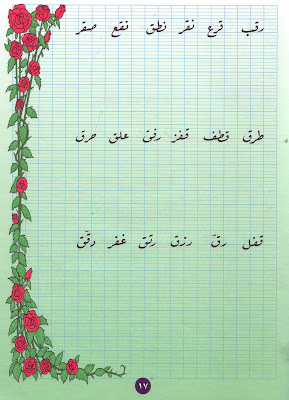 رقب قرع نقر نطق نقع صقر
طرق قطف قفز رفق علق حرق
قفل رقّ رزق رتق غفر دقّق
١٧